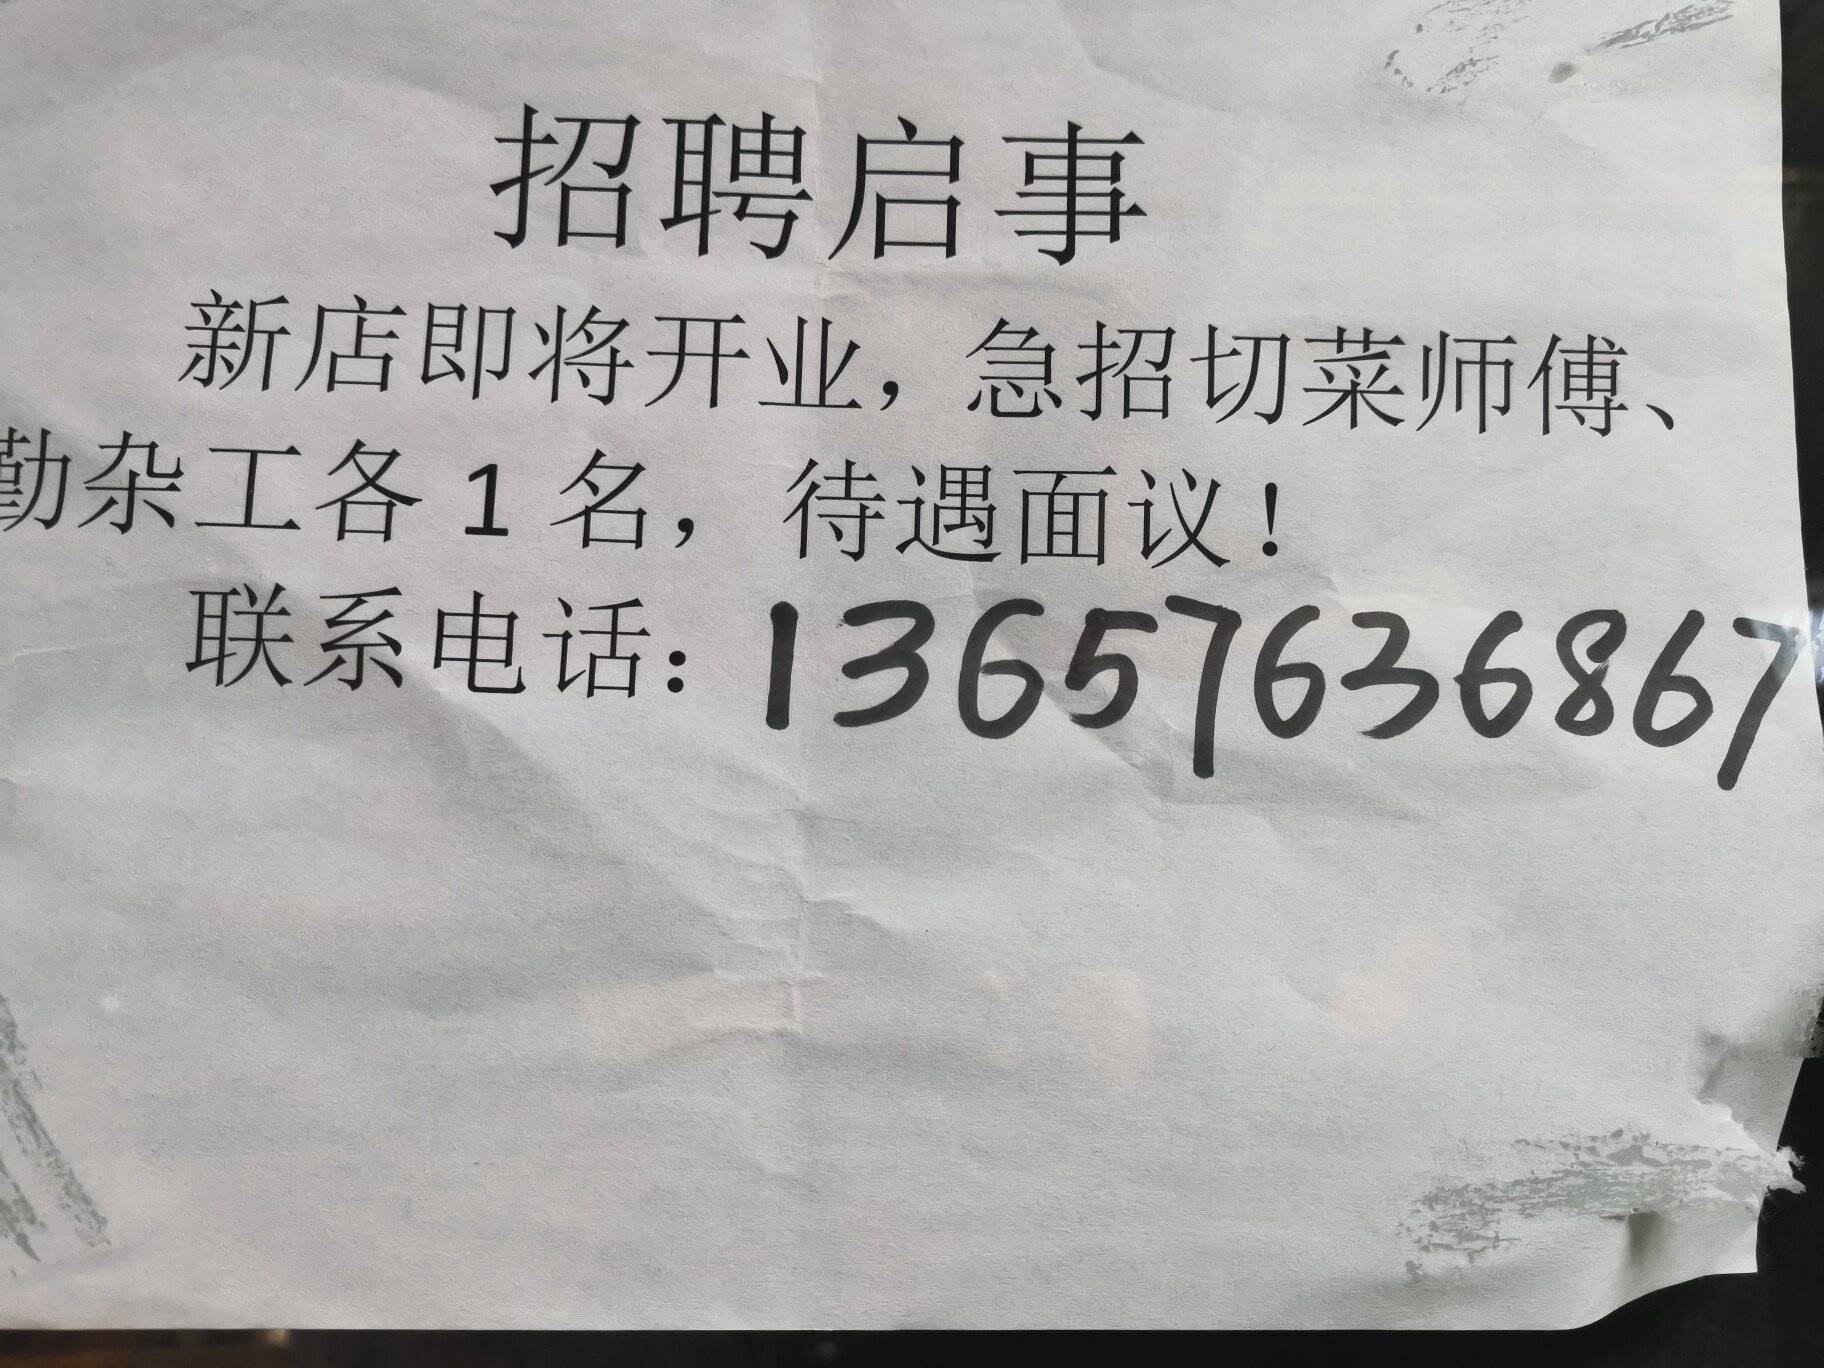 招聘启事
新店即将开业，急招切菜师傅、
勤杂工各1名，待遇面议！
联系电话：13657636867